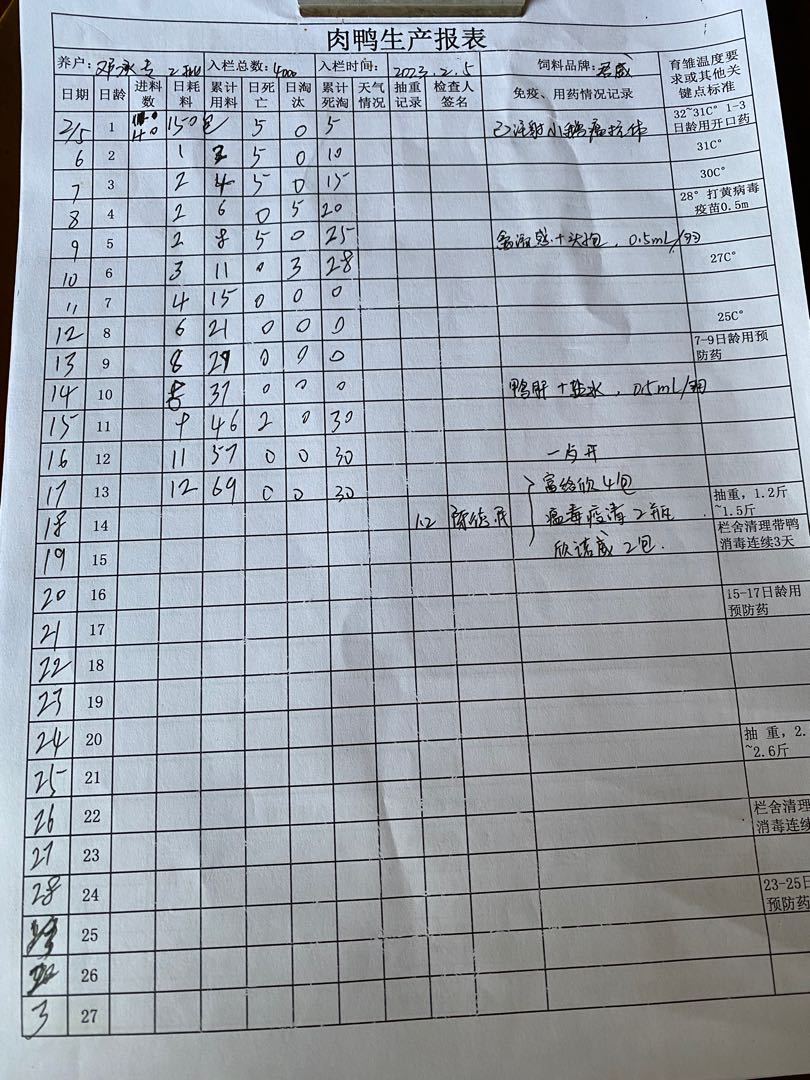 肉鸭生产报表
养户: 2批 入栏总数: 4000 入栏时间: 2023.2.5 饲料品牌: 育雏温度要求或其他关键点标准
日期 日龄 进料数 日耗料 累计用料 日死亡 日淘汰 累计死淘 天气情况 抽重记录 检查人签名 免疫、用药情况记录
2/5 1 40 150包 5 0 5 已注射小鹅瘟抗体 32~31C° 1-3日龄用开口药
6 2 1 2 5 0 10 31C°
7 3 2 4 5 0 15 30C°
8 4 2 6 0 5 20 28° 打黄病毒疫苗0.5m
9 5 2 8 5 0 25 禽流感+头孢，0.5mL/羽
10 6 3 11 0 3 28 27C°
11 7 4 15 0 0 0
12 8 6 21 0 0 0 25C°
13 9 8 29 0 0 0 7-9日龄用预防药
14 10 8 37 0 0 0 鸭肝+ 0.5mL/羽
15 11 9 46 2 0 30
16 12 11 57 0 0 30
17 13 12 69 0 0 30 4包 抽重，1.2斤~1.5斤
18 14 1.2 2瓶 栏舍清理带鸭消毒连续3天
19 15 2包.
20 16 15-17日龄用预防药
21 17
22 18
23 19
24 20 抽 重，2.~2.6斤
25 21
26 22 栏舍清理消毒连续
27 23
28 24 23-25日预防药
25
26
3 27